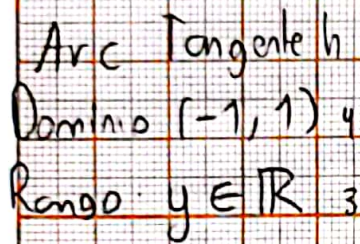 Arc Tangente h
Dominio (-1, 1) 4
Rango: y ∈ ℝ 3